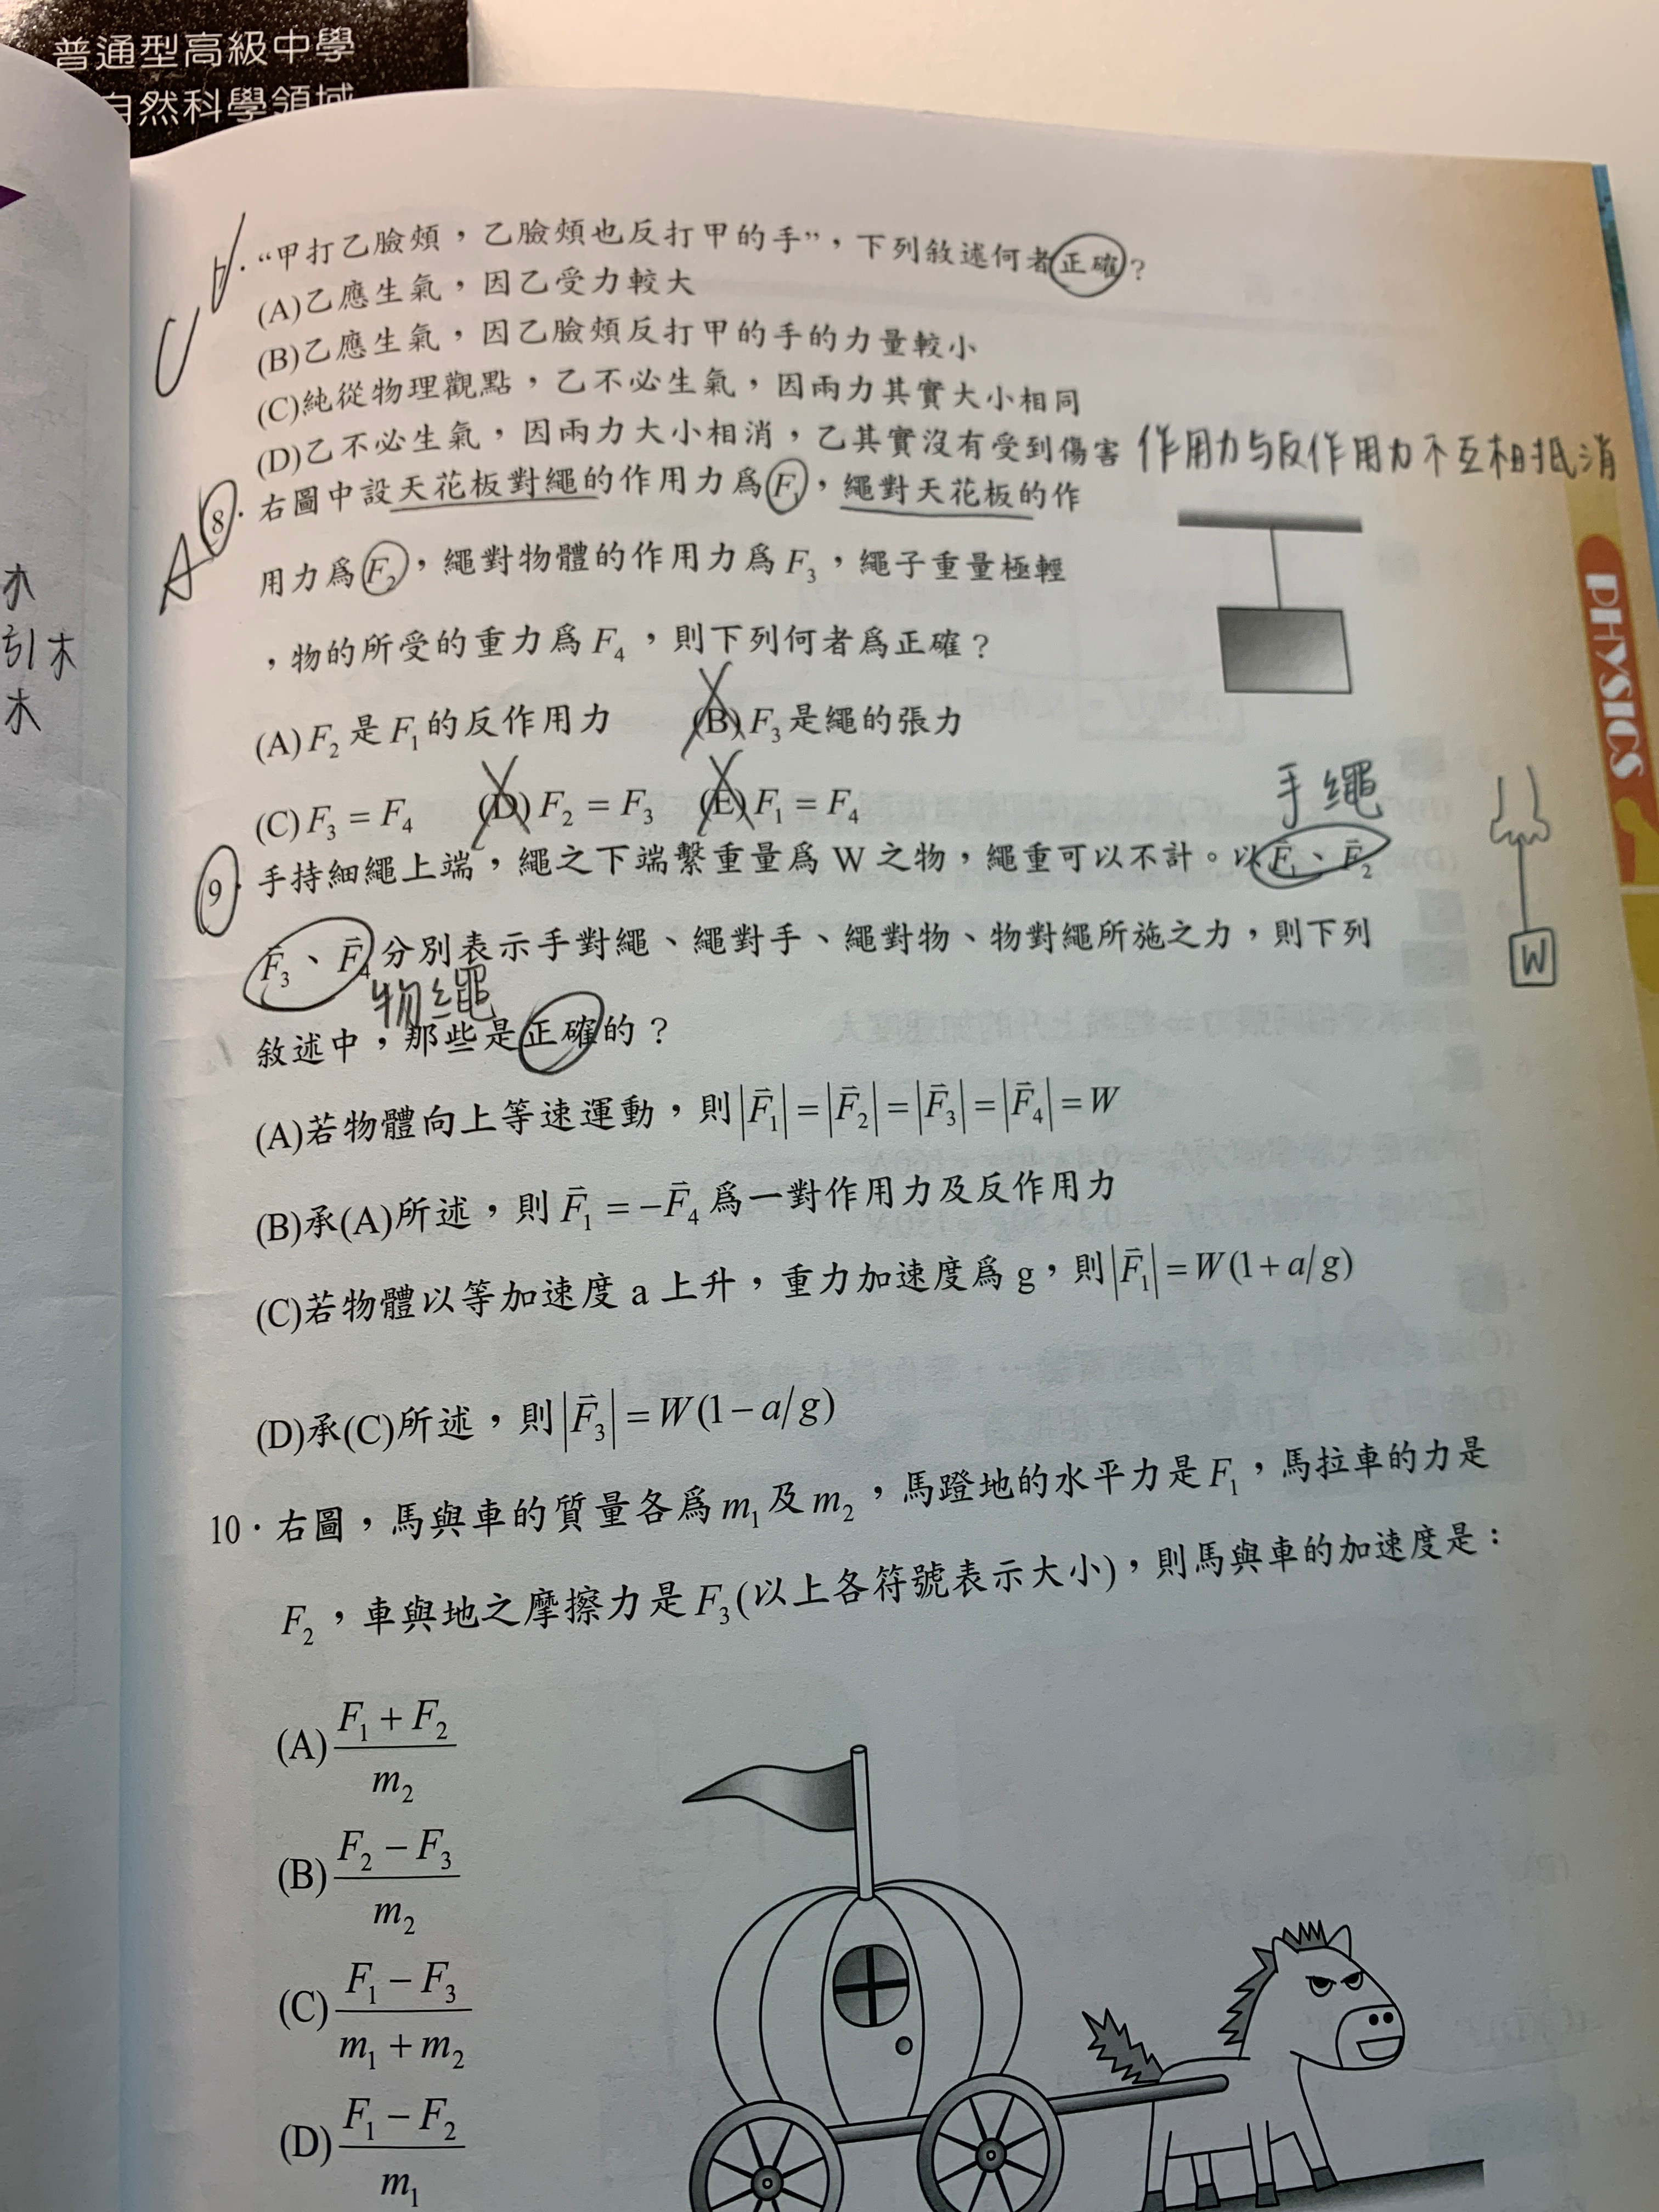 普通型高級中學
自然科學領域
木
引木
木
C
“甲打乙臉頰，乙臉頰也反打甲的手”，下列敘述何者正確？
(A)乙應生氣，因乙受力較大
(B)乙應生氣，因乙臉頰反打甲的手的力量較小
(C)純從物理觀點，乙不必生氣，因兩力其實大小相同
(D)乙不必生氣，因兩力大小相消，乙其實沒有受到傷害 作用力与反作用力不互相抵消
A 8．右圖中設天花板對繩的作用力為F₁，繩對天花板的作
用力為F₂，繩對物體的作用力為F₃，繩子重量極輕
，物的所受的重力為F₄，則下列何者為正確？
(A)F₂是F₁的反作用力 (B)F₃是繩的張力
(C)F₃ = F₄ (D)F₂ = F₃ (E)F₁ = F₄
手繩
9．手持細繩上端，繩之下端繫重量為 W 之物，繩重可以不計。以F⃗₁、F⃗₂
F⃗₃、F⃗₄分別表示手對繩、繩對手、繩對物、物對繩所施之力，則下列
物繩
W
敘述中，那些是正確的？
(A)若物體向上等速運動，則|F⃗₁| = |F⃗₂| = |F⃗₃| = |F⃗₄| = W
(B)承(A)所述，則F⃗₁ = −F⃗₄為一對作用力及反作用力
(C)若物體以等加速度 a 上升，重力加速度為 g，則|F⃗₁| = W(1+a/g)
(D)承(C)所述，則|F⃗₃| = W(1−a/g)
10．右圖，馬與車的質量各為m₁及m₂，馬蹬地的水平力是F₁，馬拉車的力是
F₂，車與地之摩擦力是F₃(以上各符號表示大小)，則馬與車的加速度是：
(A) (F₁ + F₂)/m₂
(B) (F₂ − F₃)/m₂
(C) (F₁ − F₃)/(m₁ + m₂)
(D) (F₁ − F₂)/m₁
PHYSICS